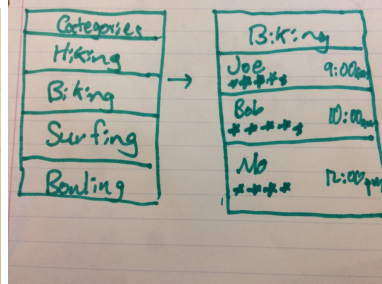 Categories
Hiking
Biking
Surfing
Bowling
Biking
Joe 9:00am
*****
Bob 10:00am
*****
No 12:00pm
****